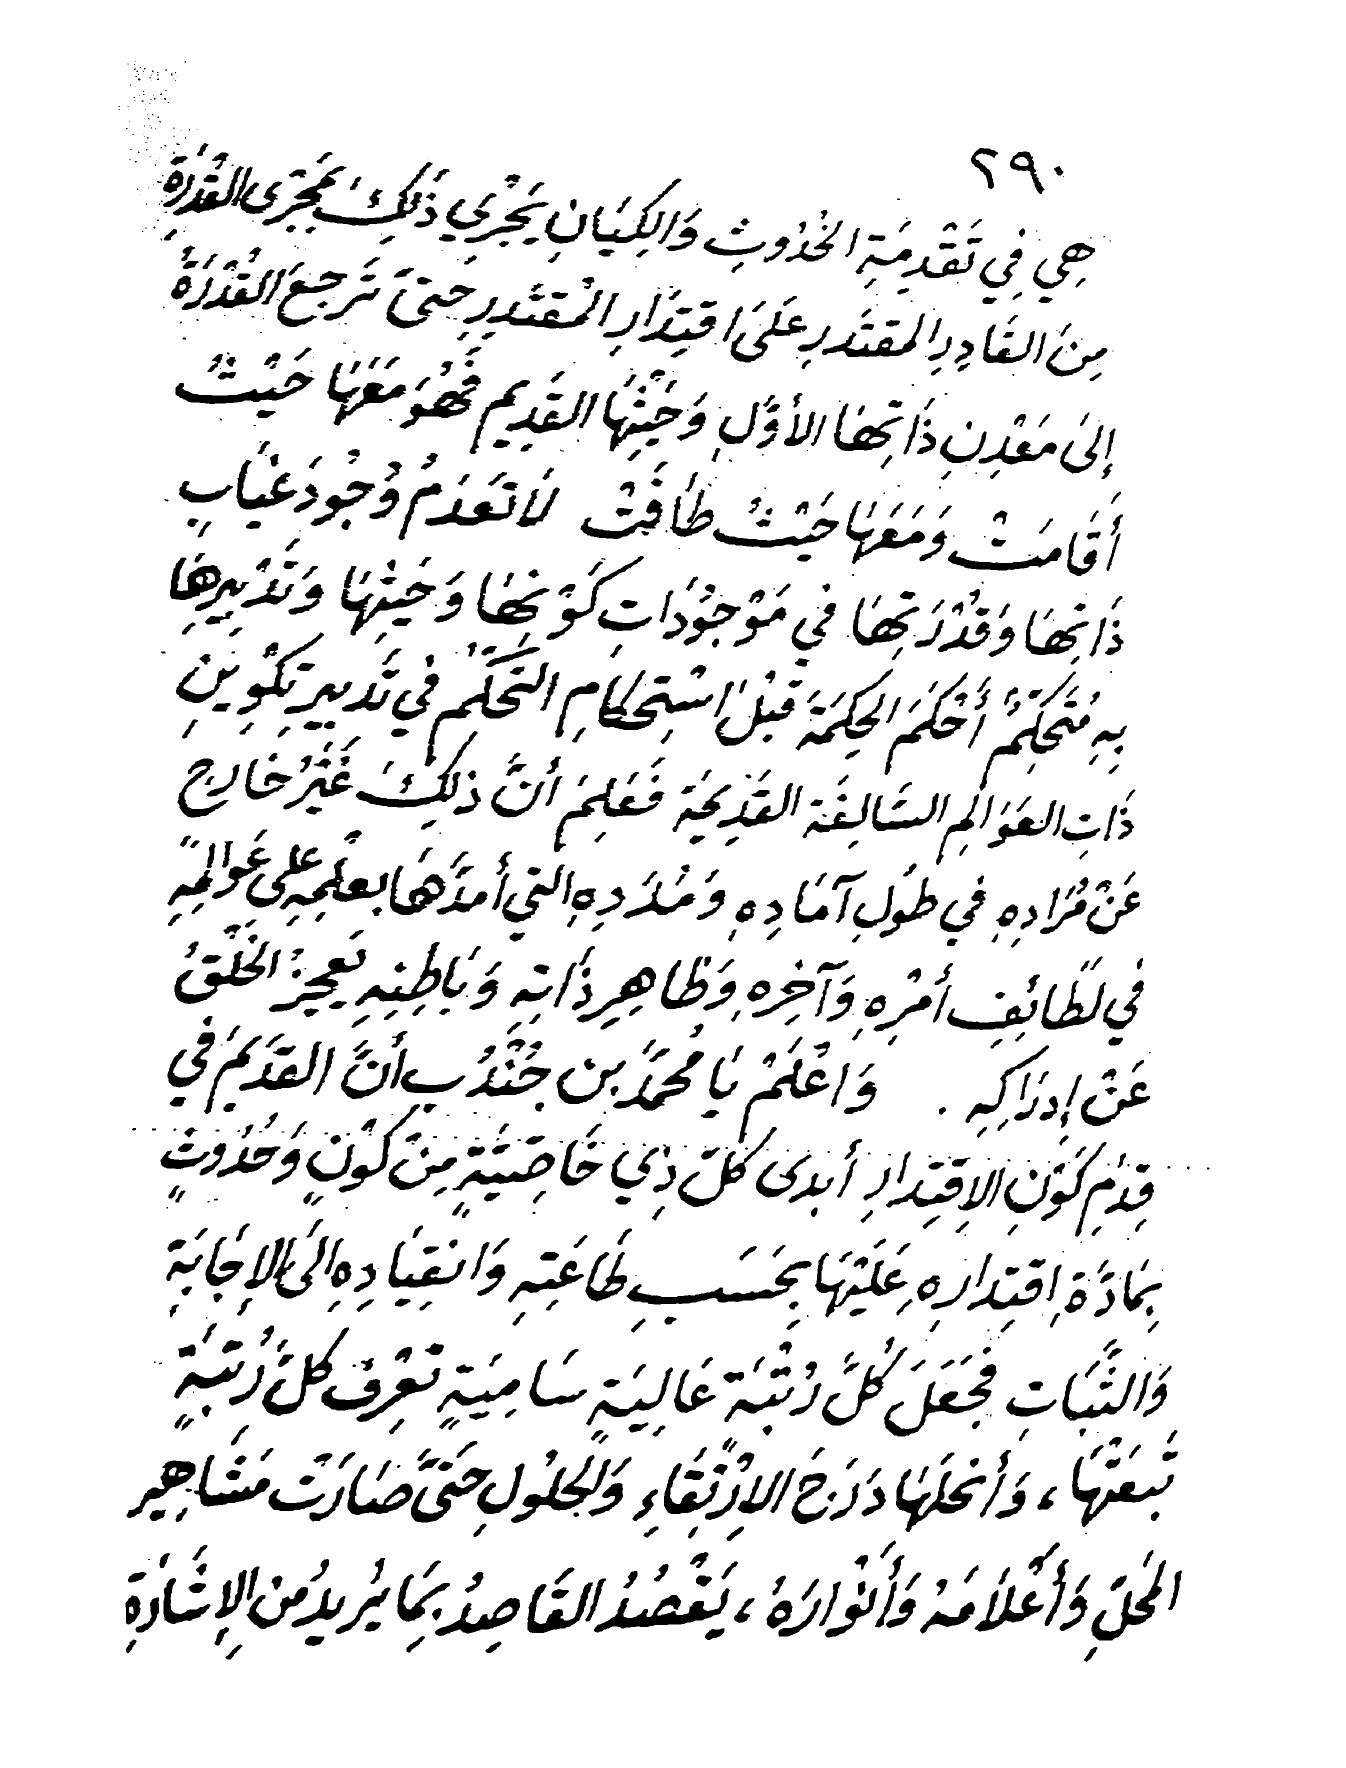 ٢٩٠
هِي فِي تَقْدِمَةِ الحُدُوثِ وَالكِيَانِ يَجْرِي ذَلِكَ مَجْرَى القُدْرَةِ
مِنَ القَادِرِ المقتَدرِ عَلَى اقتِدَارِ المُقتَدِرِ حَتىَّ تَرجعَ القُدْرَةُ
إلىَ مَعْدِنِ ذَاتِهَا الأوَّلِ وَحَيْثِهَا القَدِيم فَهُوَ مَعَهَا حَيْثُ
أَقَامَتْ وَمَعَهَا حَيْثُ طَافَتْ لاَ تَعدَمُ وُجُودَ غيَابِ
ذَاتِهَا وَقُدْرَتِهَا في مَوْجُوْدَاتِ كَوْنِهَا وَحَيْثِهَا وَتَدْبِيرِهَا
بِهِ مُتَحَكِّمٌ أَحْكَمَ الحِكمَةَ قَبْلَ اسْتِحكَامِ التَّحَكُّمِ في تَدبيرِ تكْوِينِ
ذَاتِ العَوَالِمِ السَّالِفَة القَدِيمَةِ فَعَلِمَ أنَّ ذلِكَ غَيْرُ خَارج
عَنْ مُرَادِهِ في طُولِ آمَادِهِ وَمَدَدِهِ التي أمدَّهَا بعِلْمِهِ على عَوَالمِهِ
في لَطَائِفِ أمْرِهِ وَآخِرِهِ وَظَاهِرِ ذَاتِهِ وَبَاطِنِهِ يَعجِزُ الخَلْقُ
عَنْ إدرَاكِهِ . وَاعْلَمْ يَا مُحمَّدَ بن جُنْدُب أنَّ القَدِيمَ في
قِدَمِ كَوْنِ الاِقتِدَارِ أبدى كلَّ ذِي خَاصِّيَّةٍ مِنْ كَوْنٍ وَحُدُوثٍ
بِمَادَّةِ اِقتِدَارِهِ عَلَيْهَا بِحَسَبِ طَاعَتِهِ وَانقِيَادِهِ الَى الإجَابَةِ
وَالثَّبَاتِ فَجَعَلَ كُلَّ رُتْبَة عَالِيَةٍ سَامِيَةٍ تَعْرِفُ كلَّ رُتْبَةٍ
تَبِعَتْهَا ، وَأنحَلَهَا دَرَجَ الاِرْتِقَاءِ وَالحلُولِ حَتىَّ صَارَتْ مَشَاهِير
المحَلِّ وَأَعْلاَمَهُ وَأَنْوَارَهُ ، يَقْصُدُ القَاصِدُ بِمَا يُرِيدُ مِنَ الإِشَارَةِ